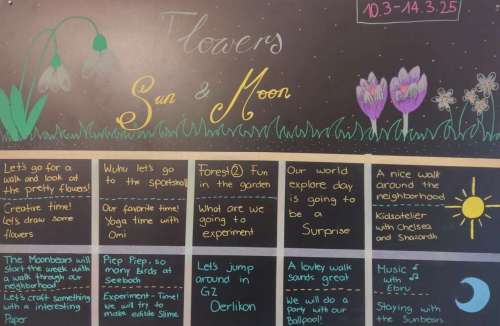 10.3-14.3.25
Flowers
Sun & Moon
Let's go for a
walk and look at
the pretty flowers!
Creative time!
Let's draw some
flowers
Wuhu let's go
to the sportshall
Our favorite time!
Yoga time with
Omi
Forest② Fun
in the garden
What are we
going to
experiment
Our world
explore day
is going to
be a
Surprise
A nice walk
around the
neighborhood
Kidsatelier
with Chelsea
and Shazarah
The Moonbears will
start the week with
a walk through our
neighborhood
Let's craft something
with a interesting
Paper
Piep Piep, so
many Birds at
Seebach
Experiment-Time!
We will try to
make edible Slime
Let's jump
around in
GZ
Oerlikon
A lovley walk
sounds great
We will do a
party with our
Ballpool!
Music
with
Ebru
Staying with
the Sunbears